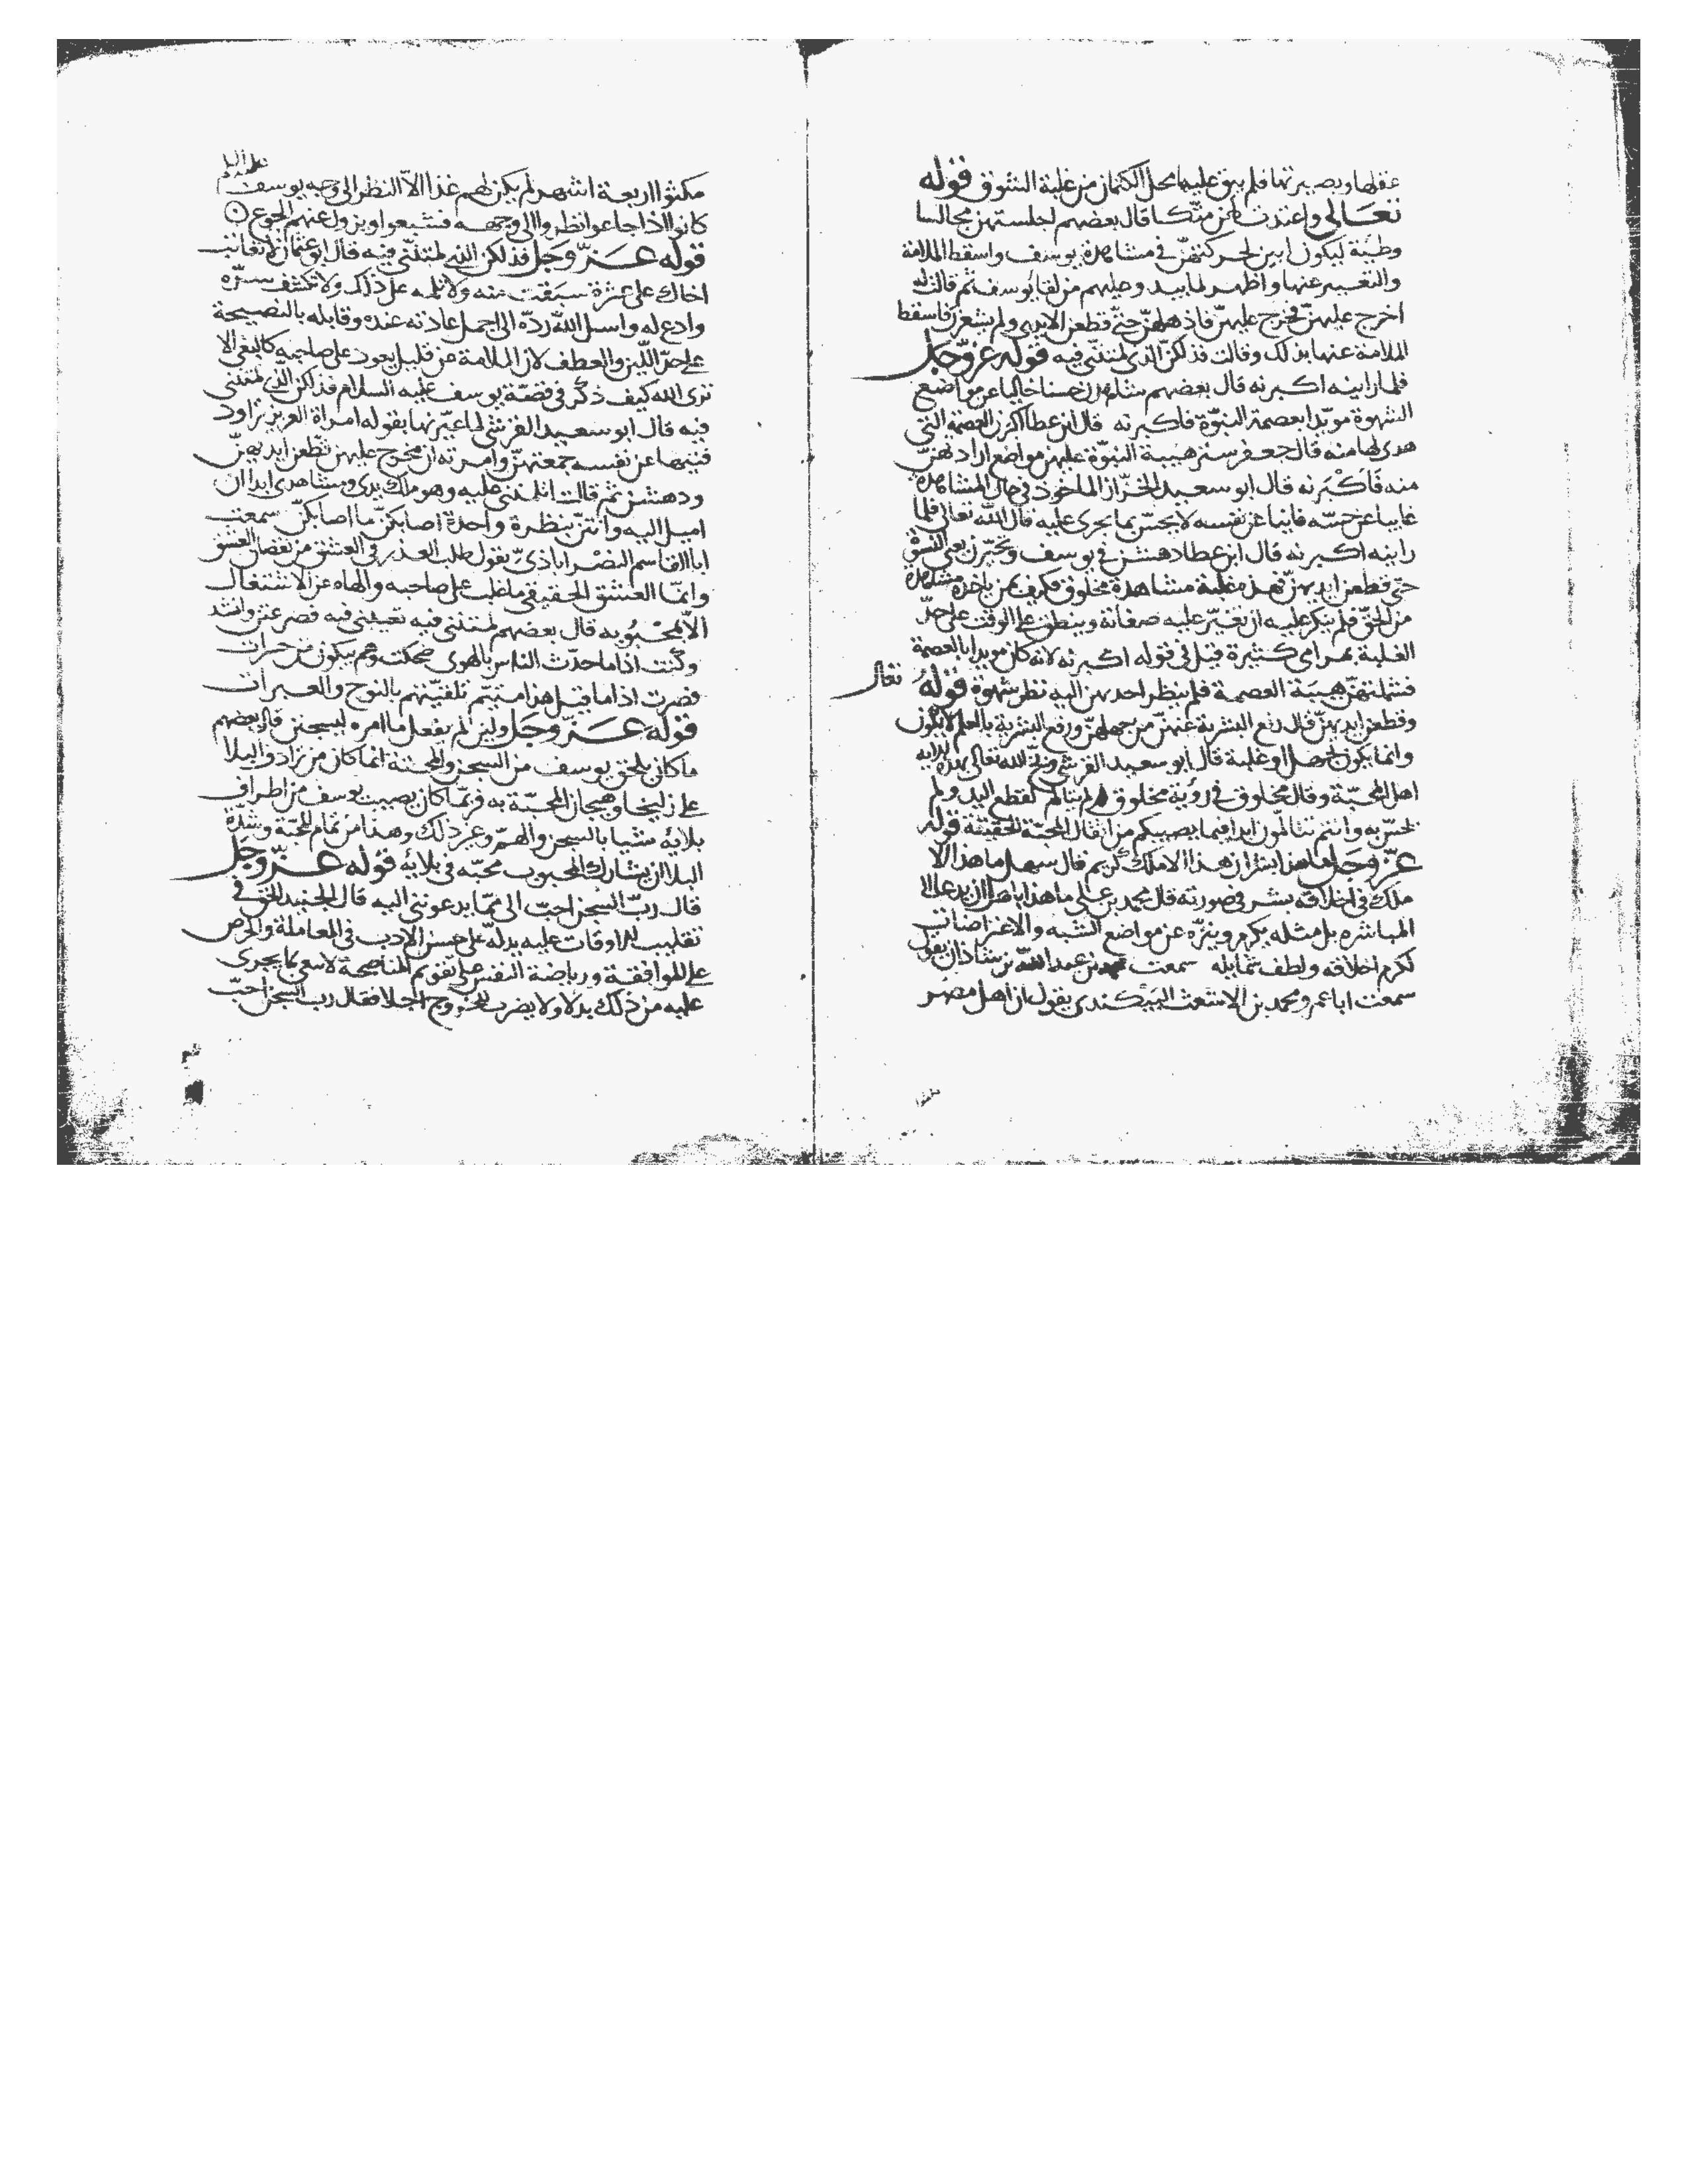 عقلها وبصيرتها فلم يبق عليها محل الكتمان من غلبة الشوق قوله
تعالى واعتدت لهن متكا قال بعضهم اجلستهن مجالسا
وطيئة ليكون ابين لحركتهن في مشاهدة يوسف واسقط الملامة
والتعيير عنها واظهر لما بيد وعليهم من لقا يوسف ثم قالت له
اخرج عليهن فخرج عليهن فاذهلهن حتى قطعن الايدي ولم يشعرن فاسقط
الملامة عنها بذلك وقالت فذلكن الذي لمتنني فيه قوله عز وجل
فلما راينه اكبرنه قال بعضهم شاهدن حسنا خاليا عن مواضع
الشهوة مويدا بعصمة النبوة فاكبرنه قال ابن عطا اكبرن العصمة التي
هدى لها منه قال جعفر ستر هيبة النبوة عليهن مواضع ارادتهن
منه فاكبرنه قال ابو سعيد الخراز الماخوذ في حال المشاهدة
غايبا عن حسه فانيا عن نفسه لا يحس بما يجرى عليه قال الله تعالى فلما
راينه اكبرنه قال ابن عطا دهشن في يوسف وتحيرن يعني النسوة
حتى قطعن ايديهن فهذه غلبة مشاهدة مخلوق فكيف بمن ياخذه مشاهدة
من الحق فلم ينكر عليه ان تغير عليه صفاته وينطق على الوقت على حد
الغلبة بمرامي كثيرة قيل في قوله اكبرنه لانه كان مويدا بالعصمة
فشملتهن هيبة العصمة فلم ينظر احدىهن اليه نظر شهوة قوله تعالى
وقطعن ايديهن قال رفع البشرية عنهن من جهلهن ورفع البشرية بالعلم لا يكون
وانما يكون لجهل او غلبة قال ابو سعيد القرشي وبخ الله تعالى بهذه الاية
اهل المحبة وقال مخلوق في رؤية مخلوق لم يتالم لقطع اليد ولم
يحس به وانتم تتالمون ابدا فيما يصيبكم من اثقال المحبة الحقيقة قوله
عز وجل ما هذا بشرا ان هذا الا ملك كريم قال سهل ما هذا الا
ملك في اخلاقه بشر في صورته قال محمد بن علي ما هذا باهل ان يدعى الى
المباشرة بل مثله يكرم وينزه عن مواضع الشبه والاعتراضات
لكرم اخلاقه ولطف شمايله سمعت محمد بن عبد الله بن شاذان يقول
سمعت ابا عمرو محمد بن الاشعث البيكندي يقول ان اهل مصر
مكثوا اربعة اشهر لم يكن لهم غذا الا النظر الى وجه يوسف عليه السلام
كانوا اذا جاعوا نظروا الى وجهه فشبعوا ويزول عنهم الجوع
قوله عز وجل فذلكن الذي لمتنني فيه قال ابو عثمان لا تعاتب
اخاك على عثرة سبقت منه ولا تلمه على ذلك ولا تكشف ستره
وادع له واسل الله رده الى اجمل عادته عنده وقابله بالنصيحة
على حد اللين والعطف لان الملامة عن قليل يعود على صاحبه كالبغي الا
ترى الله كيف ذكر في قصة يوسف عليه السلام فذلكن الذي لمتنني
فيه قال ابو سعيد القرشي لما عيرنها بقوله امراة العزيز تراود
فتيها عن نفسه جمعتهن وامرته ان يخرج عليهن فقطعن ايديهن
ودهشن ثم قالت اتلمنني عليه وهو ملك يدي ومشاهدي ابدا ان
اميل اليه وانتن بنظرة واحدة اصابكن ما اصابكن سمعت
ابا القاسم النصراباذي يقول طلب العذر في العشق من نقصان العشق
وانما العشق الحقيقي ما غلب على صاحبه والهاه عن الاشتغال
الا بمحبوبه قال بعضهم لمتنني فيه تعيبنني فيه قصرعتن وانشد
وكنت اذا ما حدث الناس بالهوى ضحكت وهم يبكون من حسرات
فصرت اذا ما قيل هذا متيم تلقيتهم بالنوح والعبرات
قوله عز وجل ولين لم يفعل ما امره ليسجنن قال بعضهم
ما كان يلحق يوسف من السجن والمحنة انما كان من تزاد والبلا
على زليخا وهيجان المحبة به فربما كان يصيب يوسف من اطراف
بلايه شيا بالسجن والهم وغير ذلك وهذا من تمام المحبة وشدة
البلا ان يشارك المحبوب محبه في بلايه قوله عز وجل
قال رب السجن احب الى مما يدعونني اليه قال الجنيد للحق في
تقليب الاوقات عليه يدله على حسن الادب في المعاملة والحرص
على الموافقة ورياضة النفس على تقويم المناصحة لا سعى بما يجرى
عليه من ذلك بدلا ولا يضرب للخروج اجلا فقال رب السجن احب